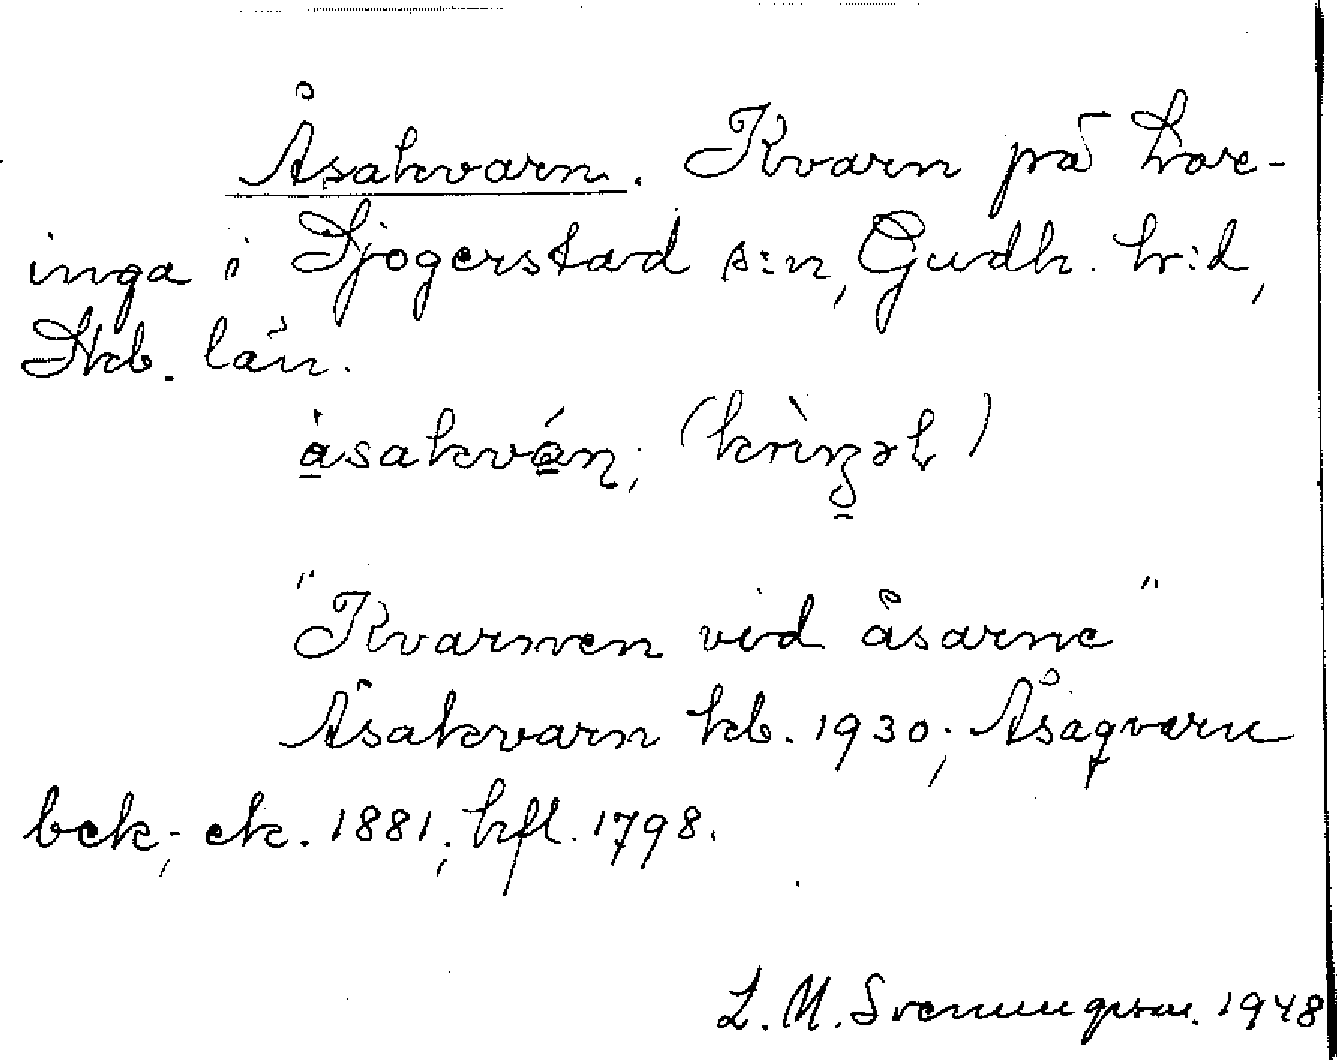 Åsakvarn. Kvarn på Hore-
inga i Sjogerstad s:n, Gudh. hr:d,
Skb. län.
àsakván; (krìŋəh)
"Kvarnen vid åsarne"
Åsakvarn kb. 1930; Åsaqvarn
bek; ek. 1881; hfl. 1798.
L. M. Svenungsson. 1948